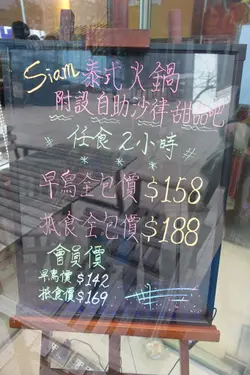 Siam 泰式火鍋
附設自助沙律甜品吧
任食2小時
早鳥全包價$158
抵食全包價$188
會員價
早鳥價$142
抵食價$169